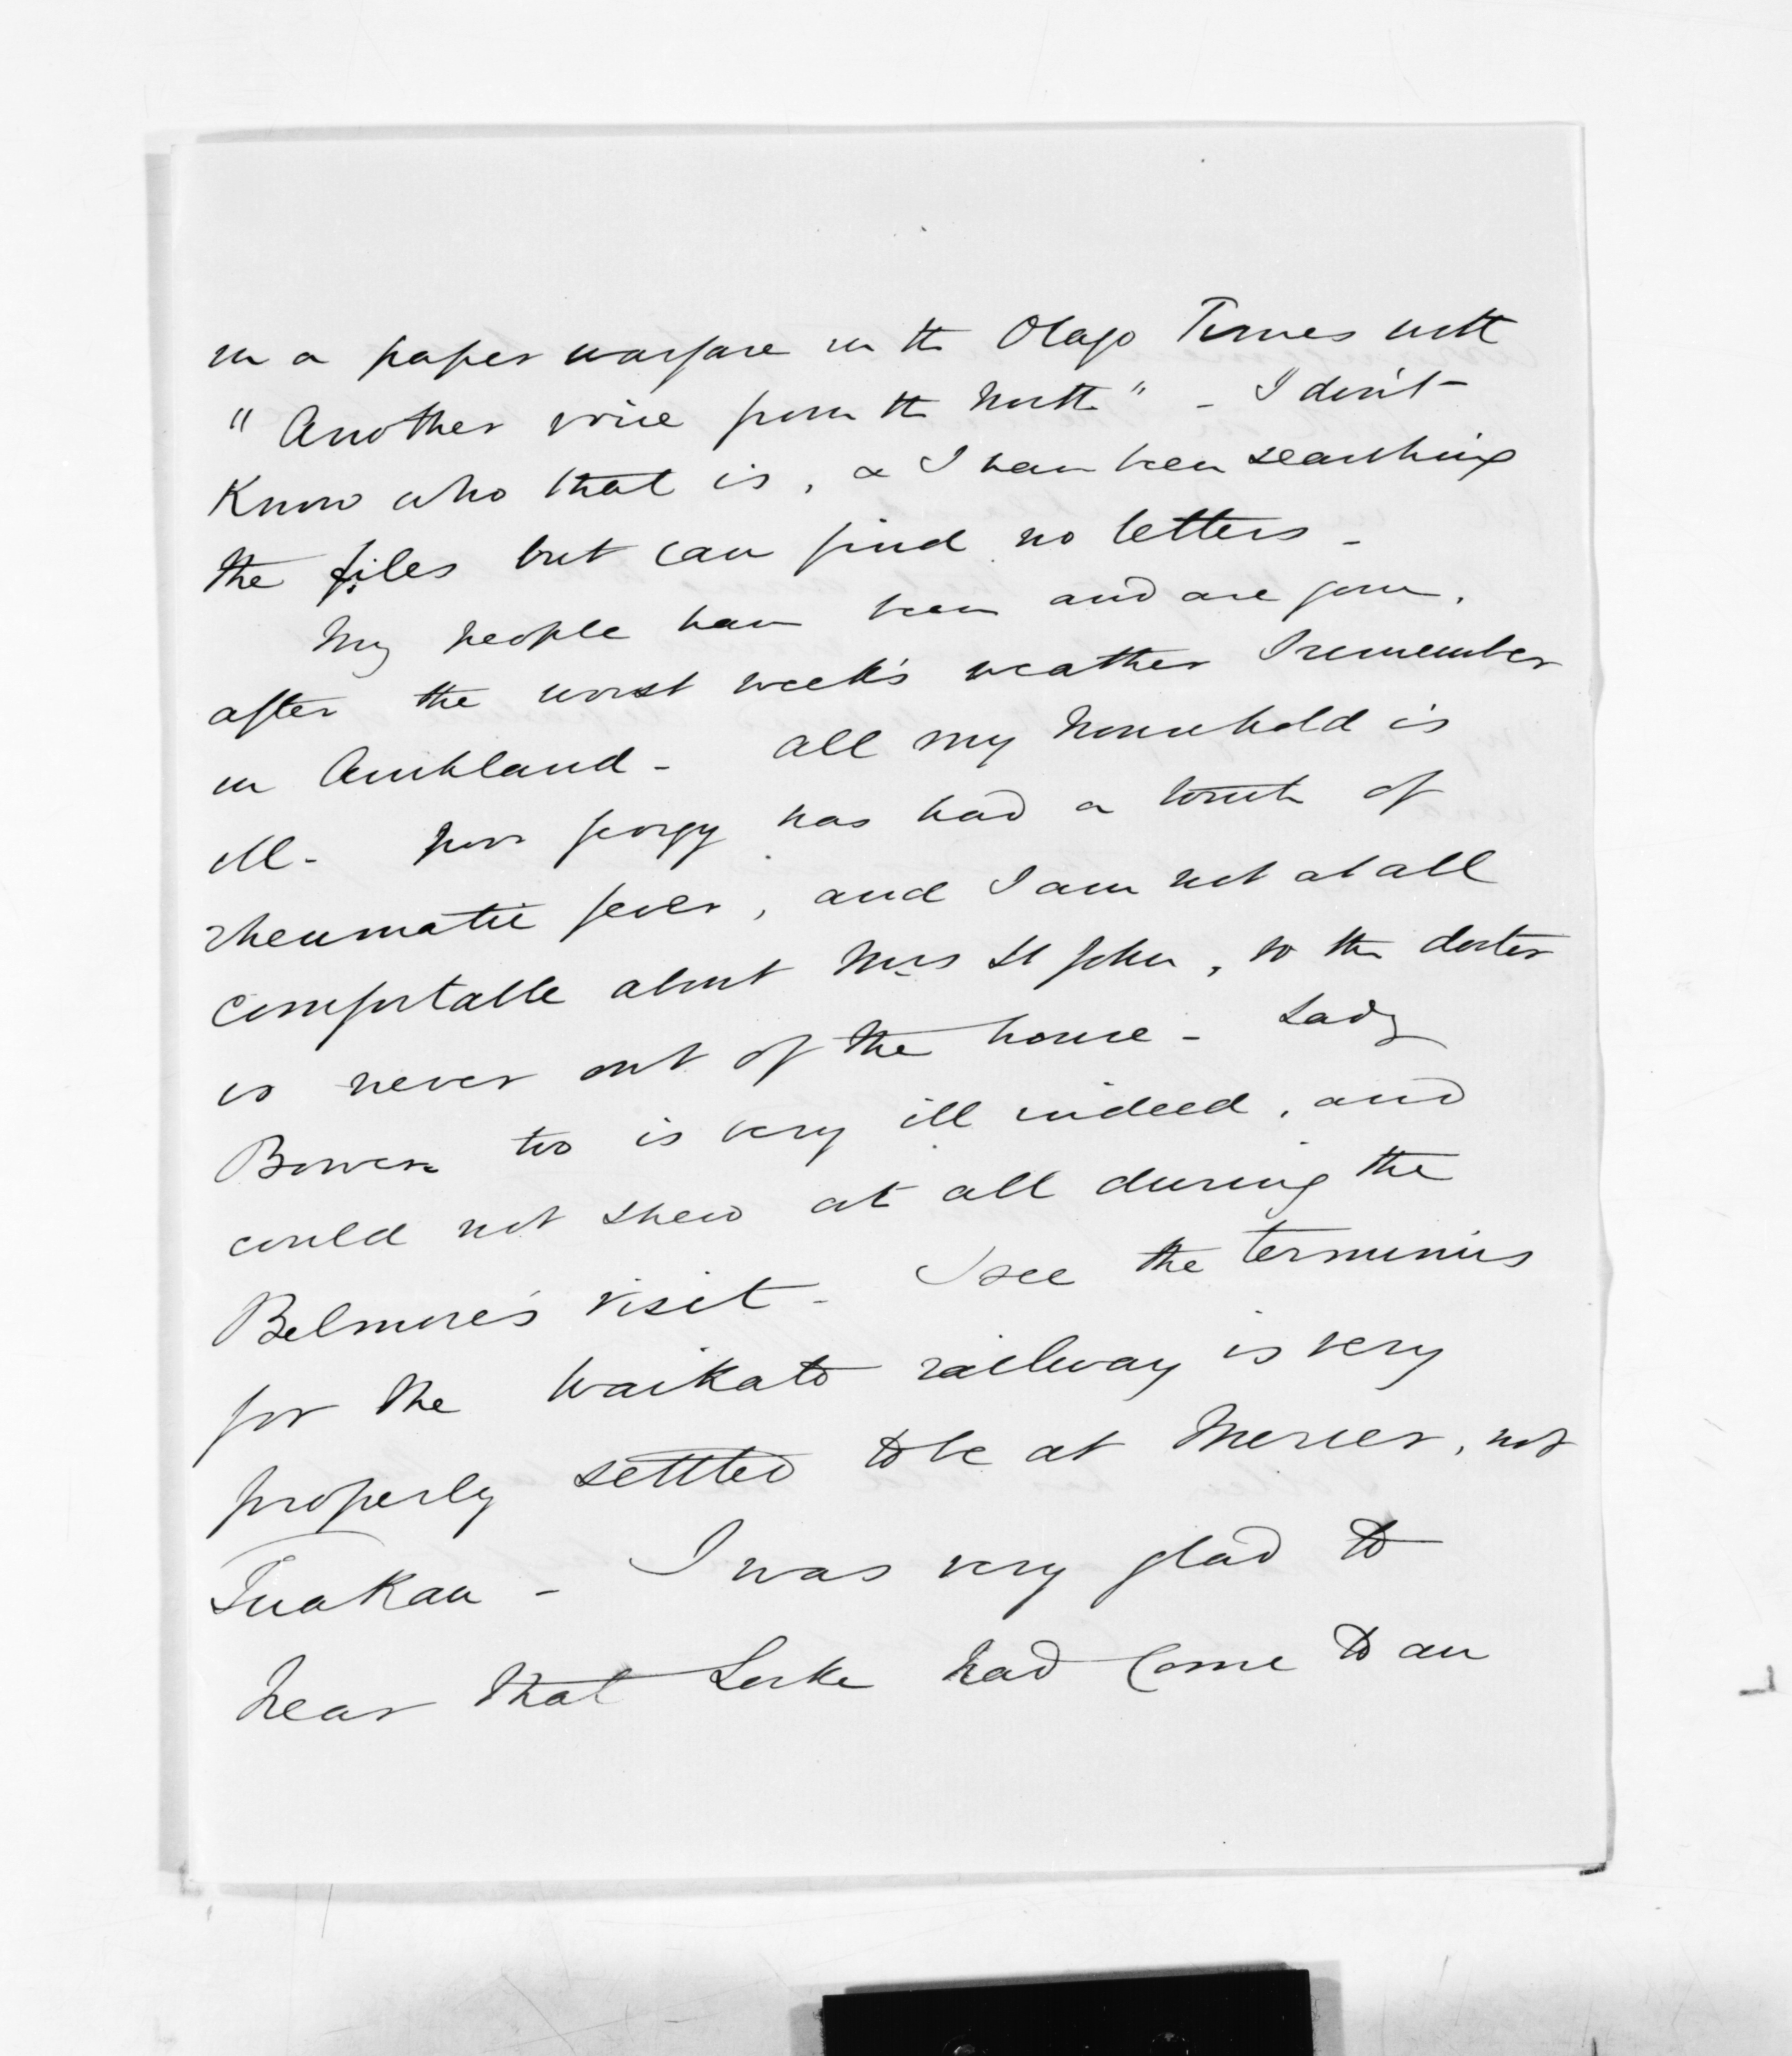 in a paper warfare in the Otago Times with
"Another voice from the North" - I don't
know who that is, & I have been searching
the files but can find no letters -
My people have been and are gone,
after the worst week's weather I remember
in Auckland - all my household is
ill - poor Georgy has had a touch of
rheumatic fever, and I am not at all
comfortable about Mrs St John, so the doctor
is never out of the house - Lady
Bowen too is very ill indeed, and
could not shew at all during the
Belmore's visit - I see the terminus
for the Waikato railway is very
properly settled to be at Mercer, not
Tuakau - I was very glad to
hear that Locke had come to an